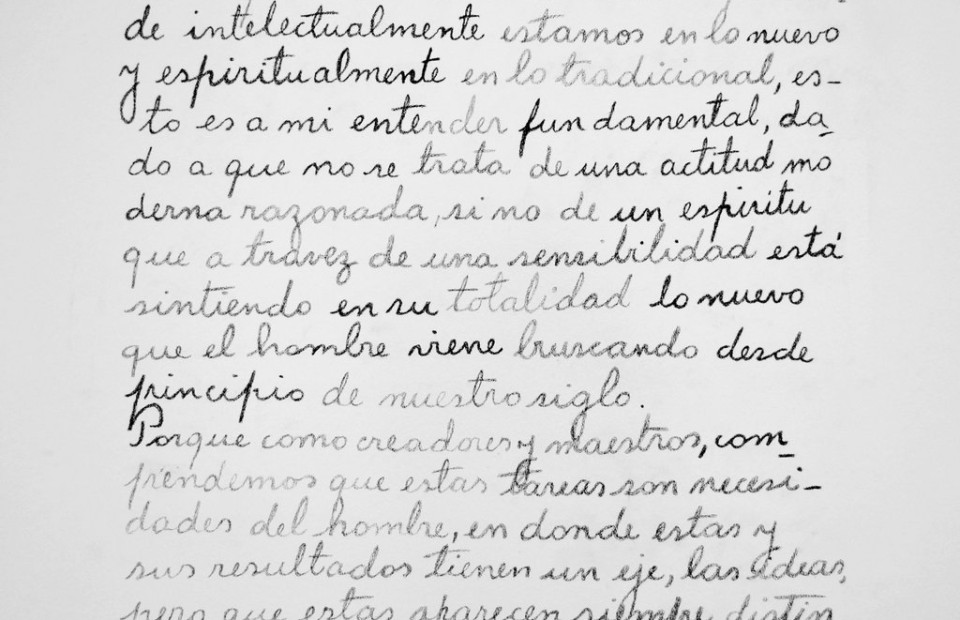 de intelectualmente estamos en lo nuevo
y espiritualmente en lo tradicional, es-
to es a mi entender fundamental, da-
do a que no se trata de una actitud mo
derna razonada, si no de un espiritu
que a travez de una sensibilidad está
sintiendo en su totalidad lo nuevo
que el hombre viene buscando desde
principio de nuestro siglo.
Porque como creadores y maestros, com-
prendemos que estas tareas son necesi-
dades del hombre, en donde estas y
sus resultados tienen un eje, las ideas,
pero que estas aparecen siempre distin